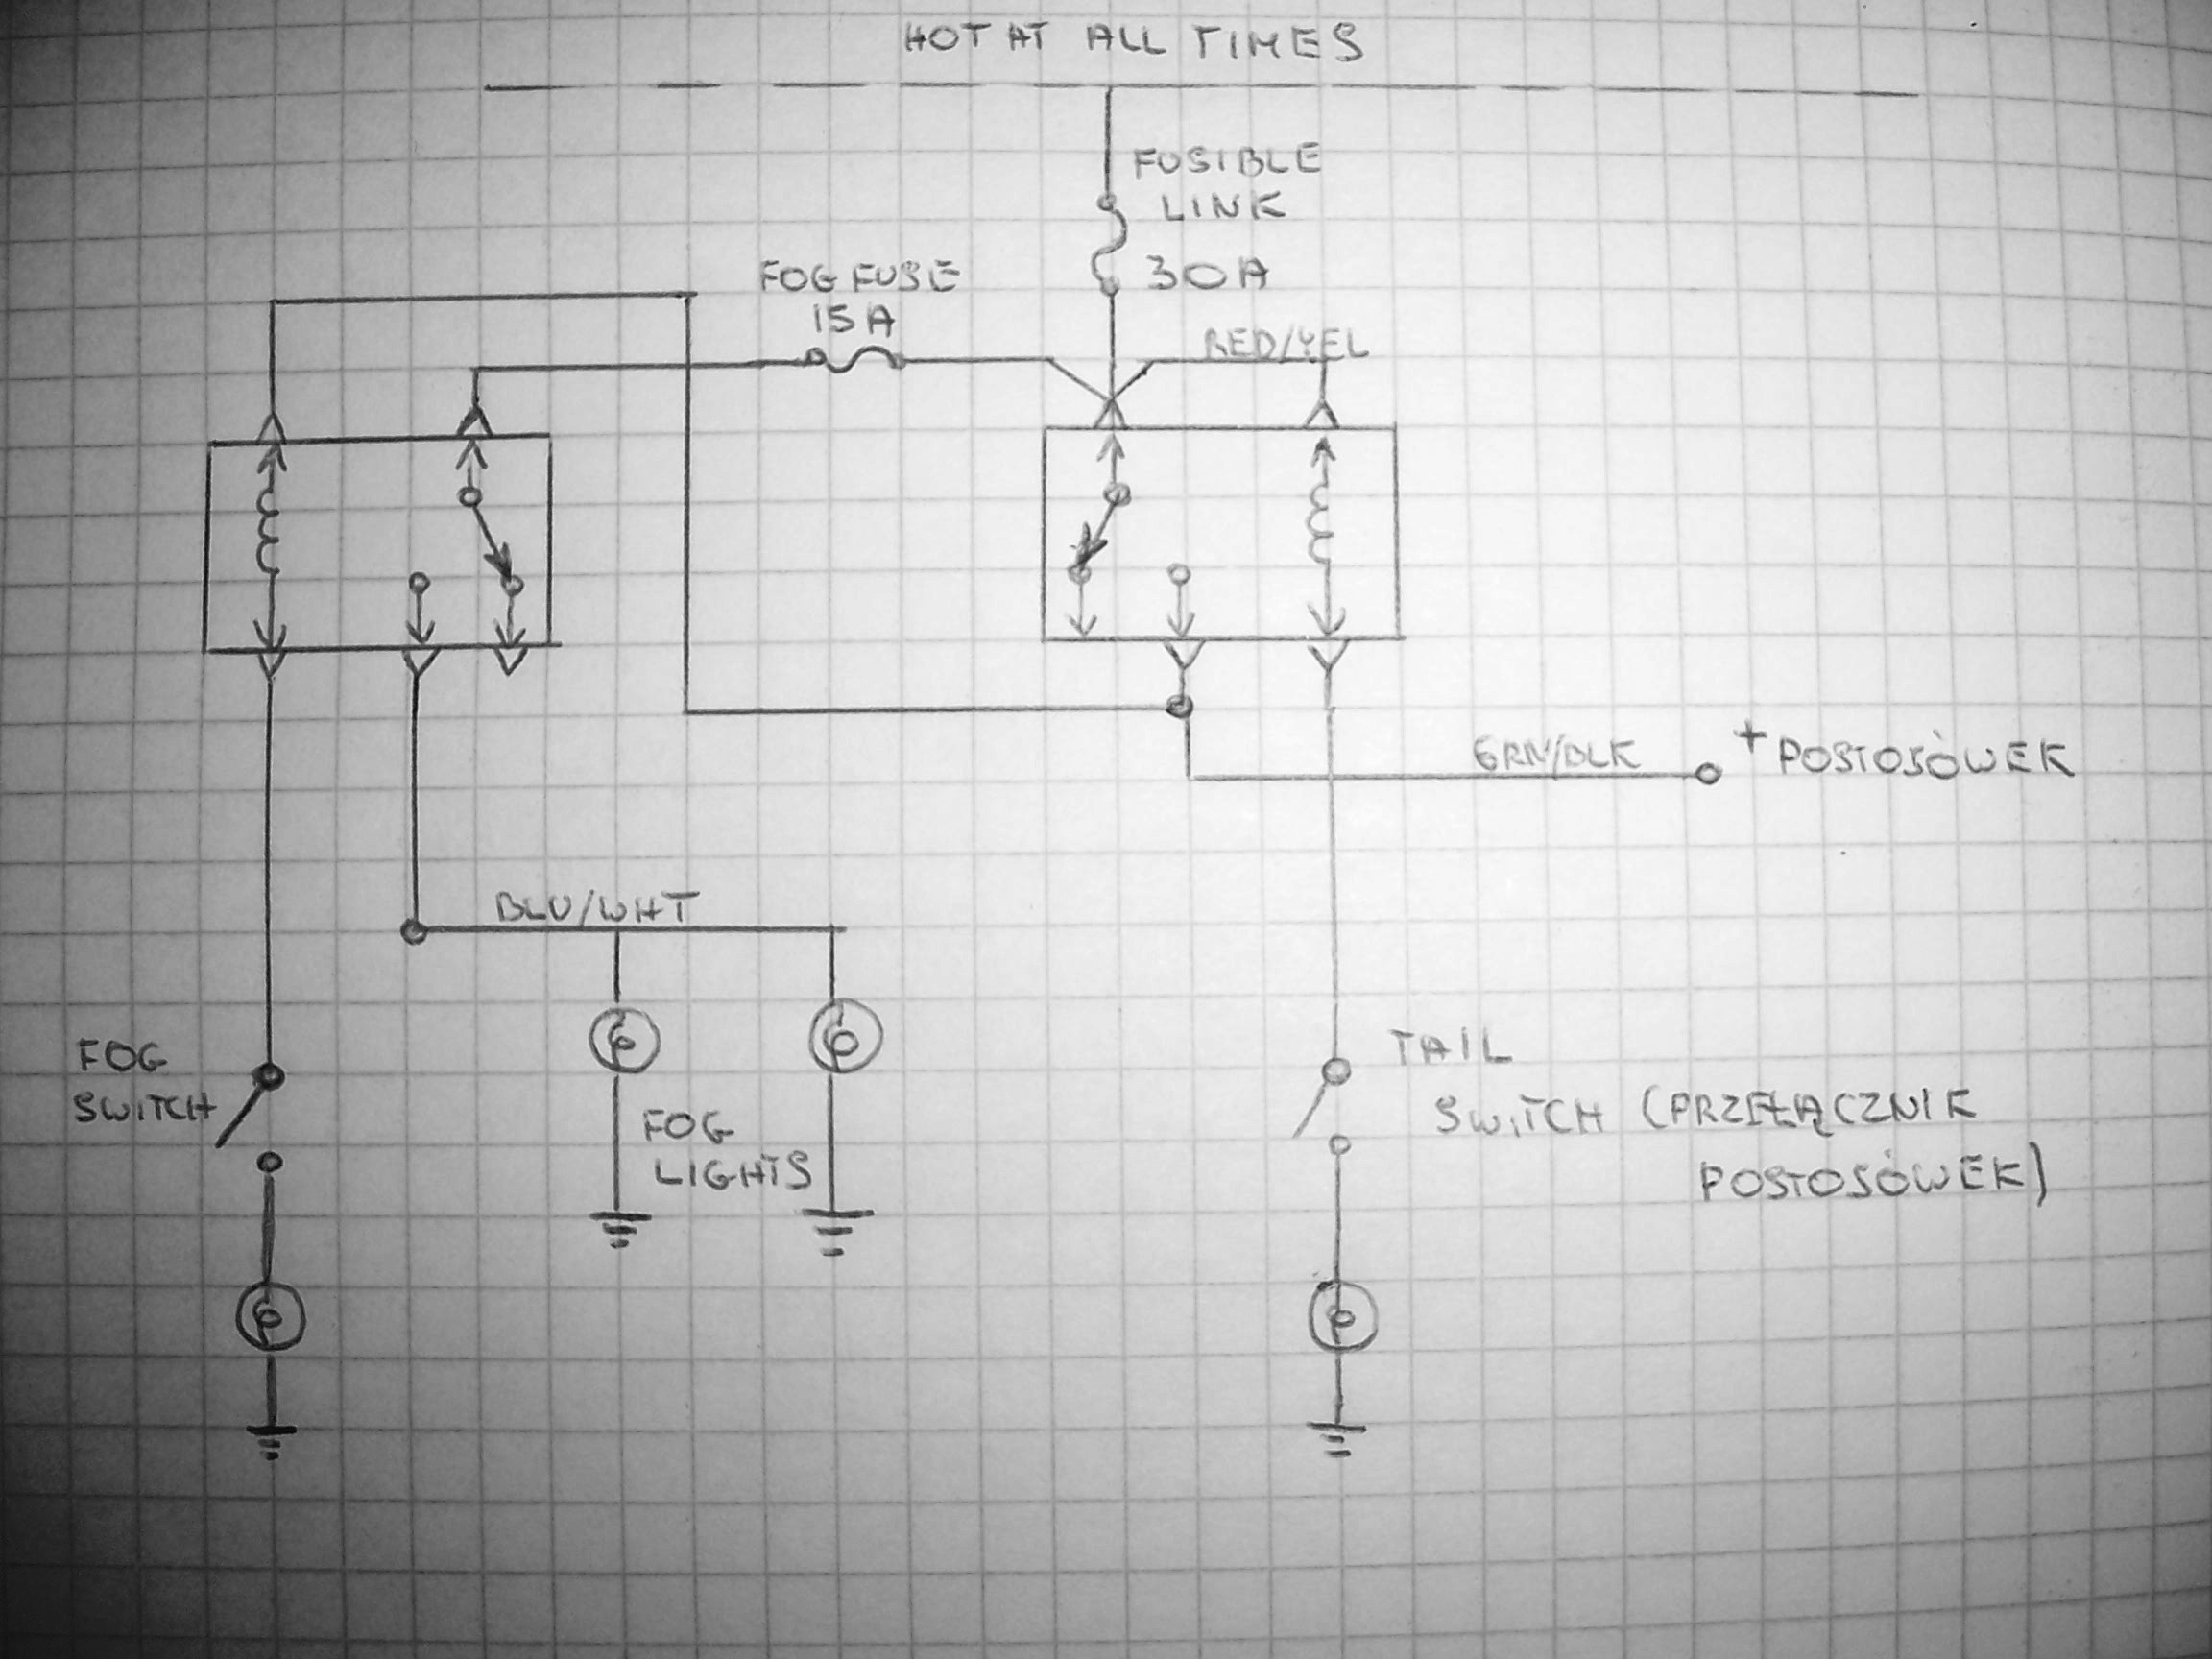 HOT AT ALL TIMES
FUSIBLE
LINK
30A
FOG FUSE
15A
RED/YEL
GRN/BLK
+ POSTOJÓWEK
BLU/WHT
FOG
SWITCH
FOG
LIGHTS
TAIL
SWITCH (PRZEŁĄCZNIK
POSTOJÓWEK)